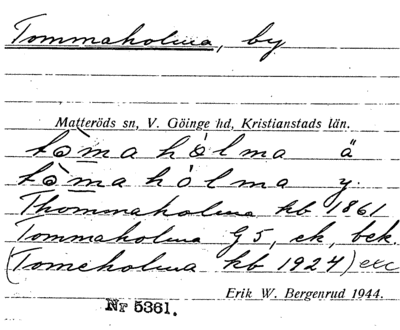 Tommaholma, by
Matteröds sn, V. Göinge hd, Kristianstads län.
tòmahòlma ä
tòmahòlma y.
Thommaholma kb 1861
Tommaholma G5, ek, bek.
(Tomeholma kb 1924) exc
Erik W. Bergenrud 1944.
Nr 5361.